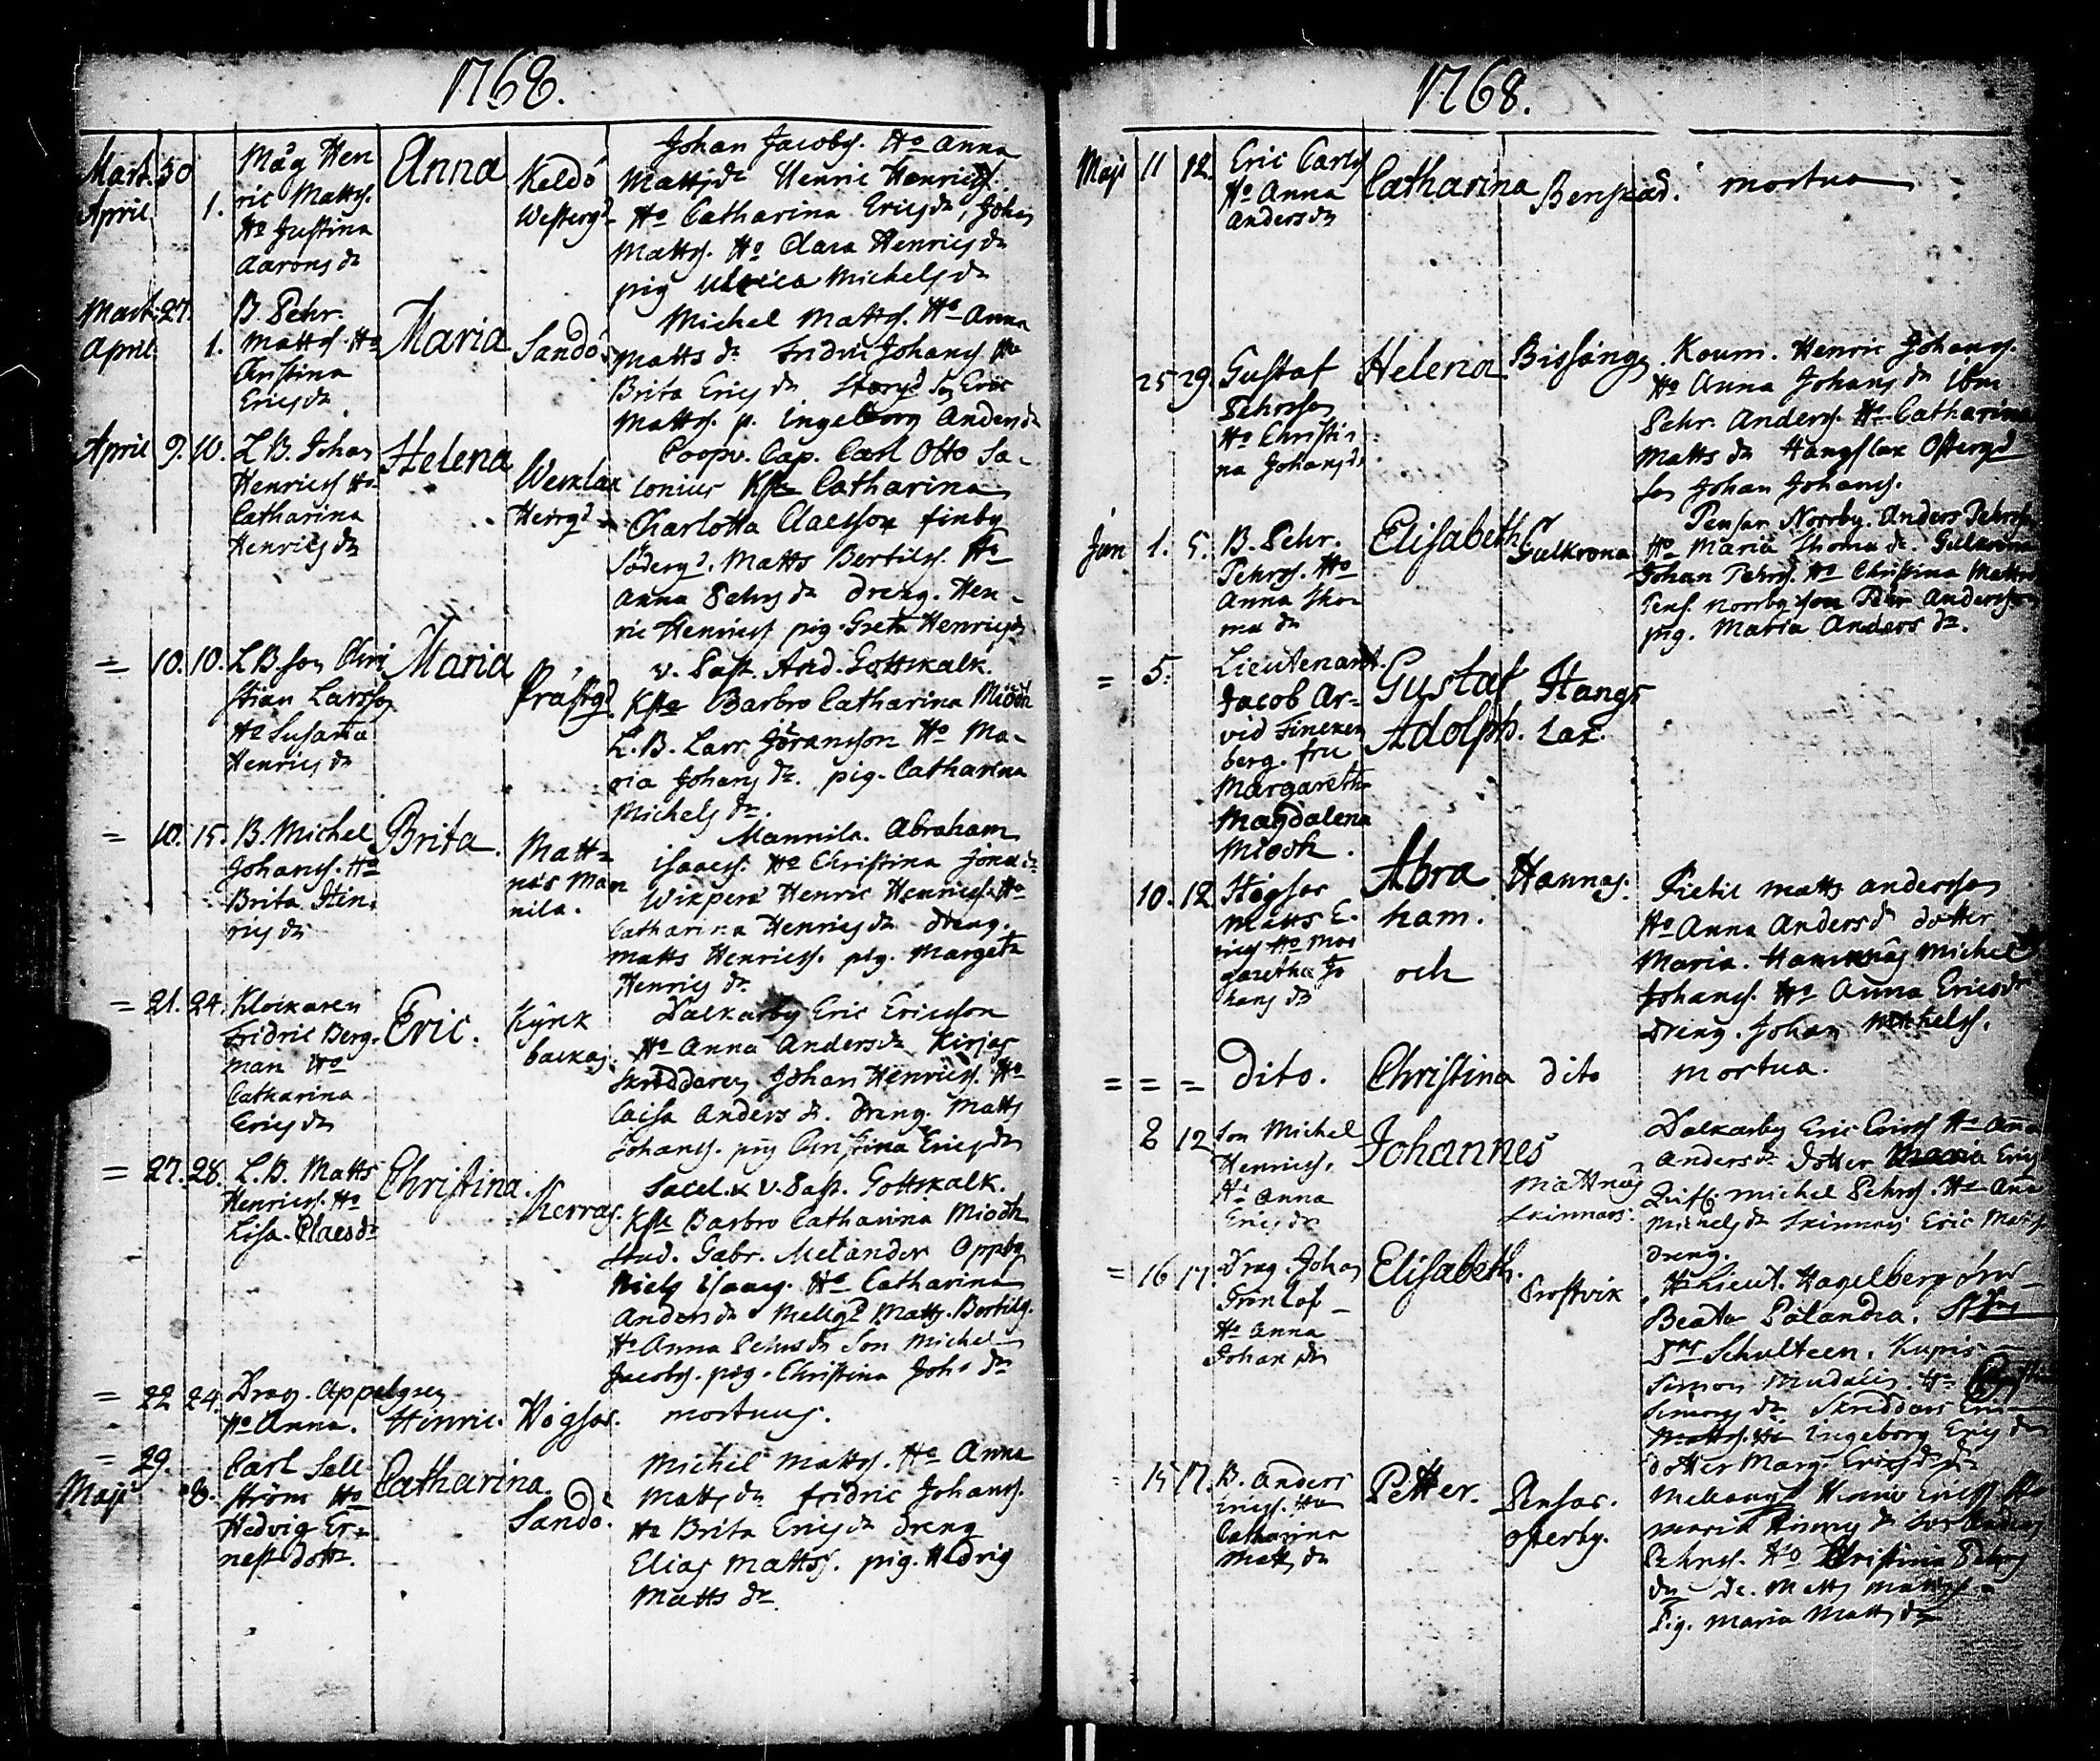 1768.
Mart. 30
April 1.
Måg Hen
ric Matts.
Ho Justina
Aarons dr
Anna
Keldö
Westergd
Johan Jacobs. Ho Anna
Matts dr Henric Henricss.
Ho Catharina Erics dr, Johan
Matts. Ho Clara Henrics dr
pig Ulrica Michels dr
Mart. 27.
April 1.
B. Pehr
Matts. Ho
Christina
Erics dr
Maria
Sandö
Michel Matts. Ho Anna
Matts dr Fridric Johans. Ho
Brita Erics dr Eric
Matts. p. Ingeborg Anders dr
April 9. 10.
L. B. Johan
Henricss Ho
Catharina
Henrics dr
Helena
Wexlax
Heirgd
Coopv. Cap. Carl Otto Sa-
lonius Kste Catharina
Charlotta Claesson finby
Södergd. Matts Bertils. Ho
Anna Pehrs dr dreng. Hen-
ric Henricss pig. Greta Henrics dr
= 10. 10.
L B. son Chri
stian Larsson
Ho Susanna
Henrics dr
Maria
Prästgd
v. Past. And. Gottskalk.
Kste Barbro Catharina Miödh
L. B. Lars Göransson Ho Ma-
ria Johans dr. pig. Catharina
Michels dr.
= 10. 15.
B. Michel
Johans. Ho
Brita Hin-
rics dr
Brita.
Matt-
näs Man
nila.
Mannila. Abraham
Isaacss. Ho Christina Jona dr
Wikperä Henric Henricss. Ho
Catharina Henrics dr dreng.
Matts Henricss. pig. Margeta
Henrics dr.
= 21. 24.
Klockaren
Fridric Berg-
man Ho
Catharina
Erics dr
Eric.
Kyrk
backas.
Dalkarby Eric Ericsson
Ho Anna Anders dr Kirjas
Skräddaren Johan Henricss. Ho
Caisa Anders dr. dreng. Matts
Johans. pig Christina Erics dr
= 27. 28.
L. B. Matts
Henricss. Ho
Lisa Claes dr
Christina.
Kerras.
Sacel. & v. Past. Gottskalk.
Kste Barbro Catharina Miödh
Stud. Gabr. Melander Oppby
Niels Isaacs. Ho Catharina
Anders dr Mellgd Matts. Bertils.
Ho Anna Pehrs dr Son Michel
Jacobs. pig. Christina Joh. dr
= 22 24.
Drag. Appelgren
Ho Anna.
Hinric.
Högsar.
mortuus.
= 29.
Maji 8.
Carl Sell
ström Ho
Hedvig Er-
nest dottr.
Catharina.
Sandö.
Michel Matts. Ho Anna
Matts dr Fridric Johans.
Ho Brita Erics dr dreng
Elias Matts. pig. Hedvig
Matts dr.
1768.
Maji 11 12.
Eric Carls
Ho Anna
Anders dr
Catharina
Benskär.
mortua
25 29.
Gustaf
Pehrsson
Ho Christi-
na Johans dr
Helena
Bissångz
Koum. Henric Johans.
Ho Anna Johans dr ibm
Pehr Anderss. Ho Catharina
Matts dr Hangslax Ostergd
Son Johan Johans.
Jun 1. 5.
B. Pehr.
Pehrss. Ho
Anna Tho-
ma dr
Elisabeth.
Gulkrona
Pensar Norrby. Anders Pehrss.
Ho Maria Thoma dr. Gulkrona
Johan Pehrss. Ho Christina Matts
Pens. Norrby son Pehr Andersson
pig. Maria Anders dr.
= 5.
Lieutenant.
Jacob Ar-
vid Fincken
berg. fru
Margaretha
Magdalena
Miödh.
Gustaf
Adolph.
Hangs
lax.
10. 12.
Högsar
Matts E-
rics Ho Mar
garetha Jo
hans dr
Abra
ham.
och
Hannas.
Pietie Matts Andersson
Ho Anna Anders dr dotter
Maria. Hamnnäs Michel
Johans. Ho Anna Erics dr
Dreng. Johan Michels.
= = =
Dito.
Christina
dito
mortua.
8 12
Son Michel
Henricss.
Ho Anna
Erics dr
Johannes
Mattnäs
Skinnars.
Dalkarby Eric Ericss Ho Anna
Anders dr dotter Maria Erics
Michel Pehrss. Ho Anna
Michels dr Skinnars Eric Matts
dreng.
= 16 17.
Drag. Johan
Grönlöf
Ho Anna
Johan dr
Elisabeth.
Prostvik
Hr Lieut. Hagelberg fru
Beata Polandra.
Schulteen. Kupis
Simon Ho
Simons dr Skräddars Eric
Matts. Ho Ingeborg Erics dr
dotter Marg. Erics dr
15 17.
B. Anders
Ericss. Ho
Catharina
Matts dr
Petter.
Pensar.
Österby.
Mellangd Henric Ericss Ho
Maria Hinrs dr Anders
Pehrss. Ho Christina Pehrs
dr Dr. Matts Mattss.
Pig. Maria Matts dr